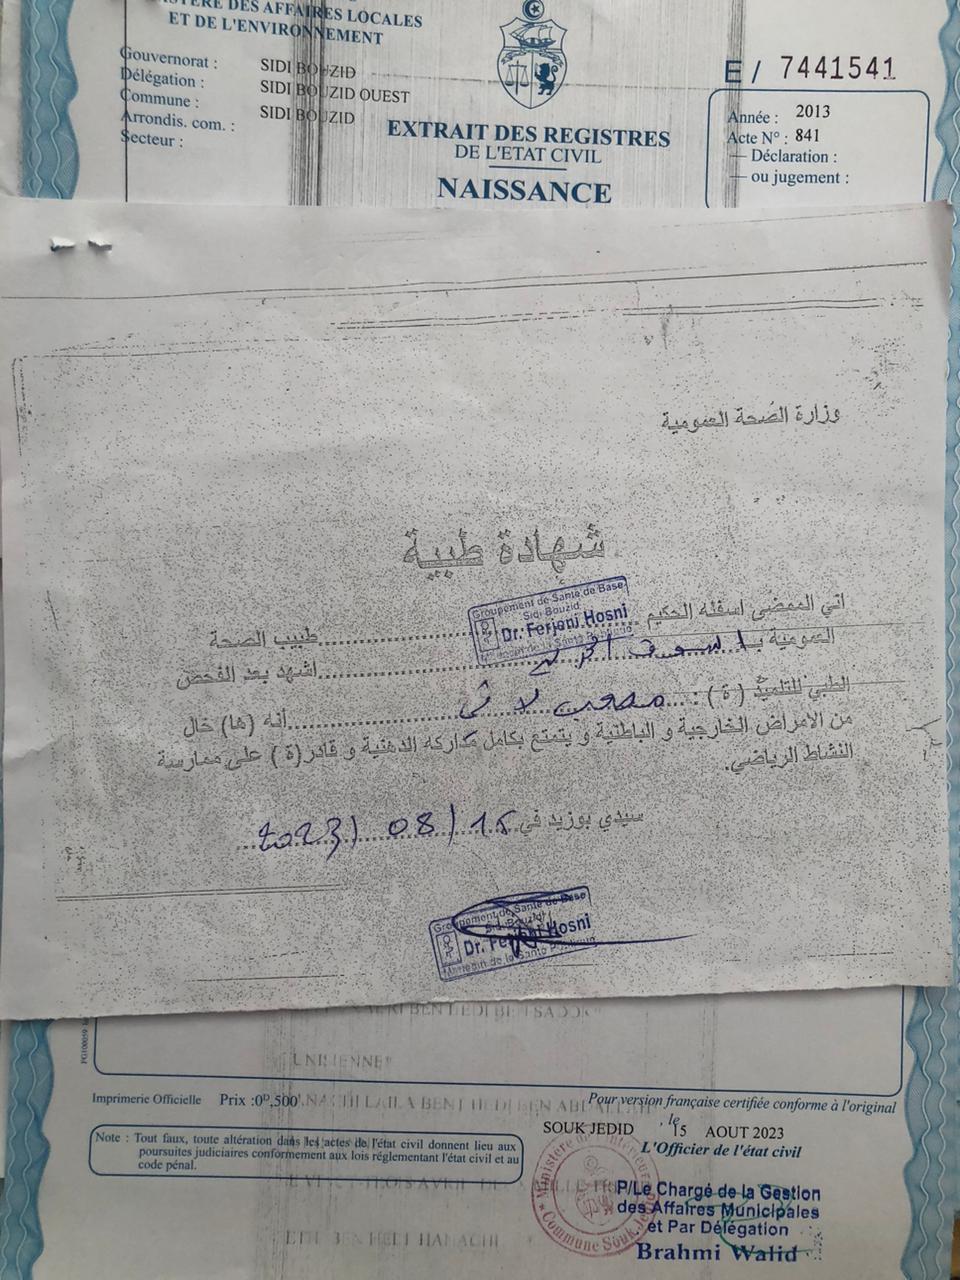 MINISTÈRE DES AFFAIRES LOCALES
ET DE L'ENVIRONNEMENT
Gouvernorat : SIDI BOUZID
Délégation : SIDI BOUZID OUEST
Commune : SIDI BOUZID
Arrondis. com. :
Secteur :
EXTRAIT DES REGISTRES
DE L'ETAT CIVIL
NAISSANCE
E / 7441541
Année : 2013
Acte N° : 841
— Déclaration :
— ou jugement :
وزارة الصحة العمومية
شهادة طبية
اني الممضي اسفله الحكيم
Groupement de Santé de Base
Sidi Bouzid
Dr. Ferjani Hosni
Médecin de la Santé Publique
طبيب الصحة
العمومية بـ
اشهد بعد الفحص
الطبي للتلميذ ( ة ) : مصعب
أنه (ها) خال
من الامراض الخارجية و الباطنية و يتمتع بكامل مداركه الذهنية و قادر(ة ) على ممارسة
النشاط الرياضي.
سيدي بوزيد في 15/ 08 /2023
Groupement de Santé de Base
Sidi Bouzid
Dr. Ferjani Hosni
Médecin de la Santé Publique
Imprimerie Officielle Prix :0ᴰ,500
Pour version française certifiée conforme à l'original
SOUK JEDID , le 15 AOUT 2023
L'Officier de l'état civil
Note : Tout faux, toute altération dans les actes de l'état civil donnent lieu aux
poursuites judiciaires conformement aux lois réglementant l'état civil et au
code pénal.
P/Le Chargé de la Gestion
des Affaires Municipales
et Par Délégation
Brahmi Walid